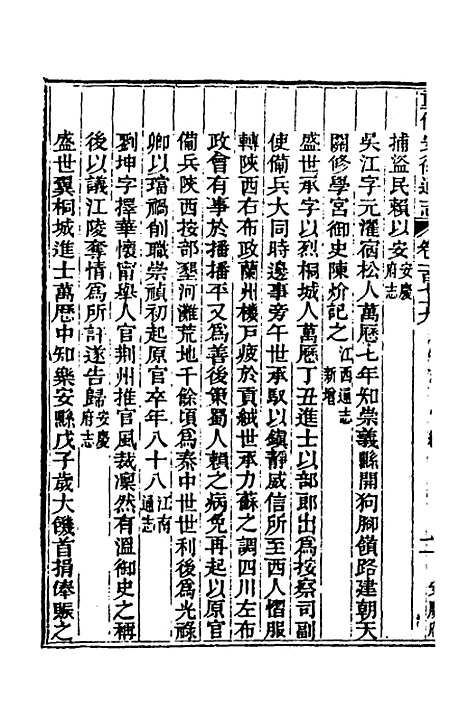 重修安徽通志 卷二百七十九
捕盜民賴以安安慶府志
吳江字元濯宿松人萬曆七年知崇義縣開狗腳嶺路建朝天
關修學宮御史陳炌記之江西通志新增
盛世承字以烈桐城人萬曆丁丑進士以部郎出為按察司副
使備兵大同時邊事旁午世承馭以鎮靜威信所至西人慴服
轉陝西右布政蘭州機戶疲於貢絨世承力蘇之調四川左布
政會有事於播播平又為善後策蜀人賴之病免再起以原官
備兵陝西按部墾河灘荒地千餘頃為秦中世世利後為光祿
卿以璫禍削職崇禎初起原官卒年八十八江南通志
劉坤字擇華懷甯舉人官荆州推官風裁凜然有溫御史之稱
後以議江陵奪情為所訐遂告歸安慶府志
盛世翼桐城進士萬歷中知樂安縣戊子歲大饑首捐俸賑之